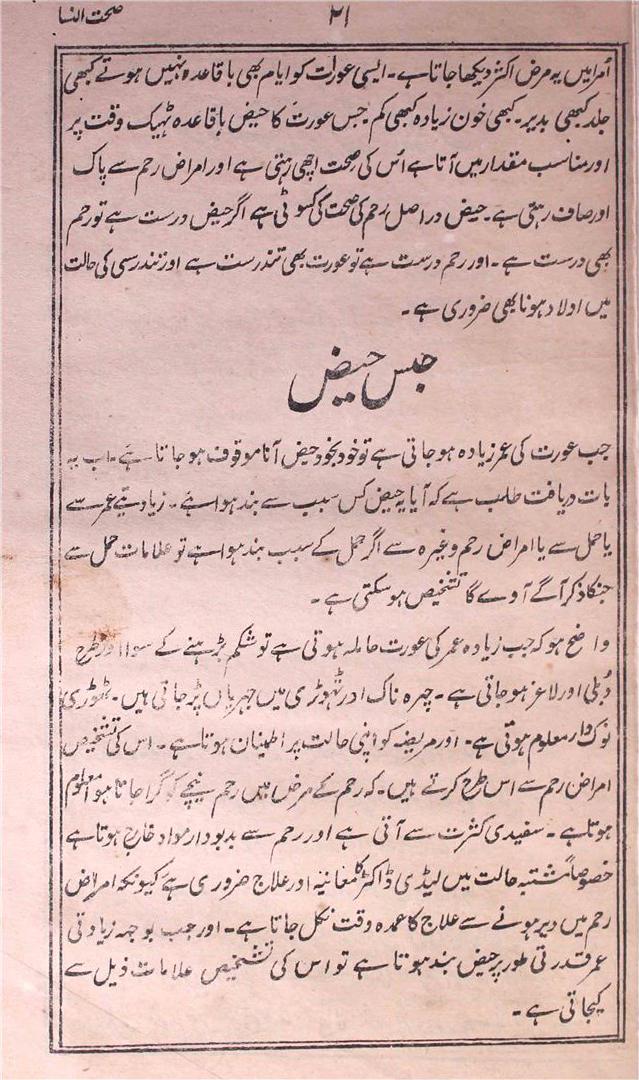 صحت النسا
۲۱
اُمرا میں یہ مرض اکثر دیکھا جاتا ہے۔ ایسی عورات کو ایام بھی باقاعدہ نہیں ہوتے کبھی
جلد کبھی بدیر۔ کبھی خون زیادہ کبھی کم جس عورت کا حیض باقاعدہ ٹھیک وقت پر
اور مناسب مقدار میں آتا ہے اُس کی صحت اچھی رہتی ہے اور امراض رحم سے پاک
اور صاف رہتی ہے۔ حیض دراصل رحم کی صحت کی کسوٹی ہے اگر حیض درست ہے تو رحم
بھی درست ہے۔ اور رحم درست ہے تو عورت بھی تندرست ہے اور تندرسی کی حالت
میں اولاد ہونا بھی ضروری ہے۔
حبس حیض
جب عورت کی عمر زیادہ ہو جاتی ہے تو خود بخود حیض آنا موقوف ہو جاتا ہے۔ اب یہ
بات دریافت طلب ہے کہ آیا یہ حیض کس سبب سے بند ہوا ہے۔ زیادتیٔ عمر سے
یا حمل سے یا امراض رحم وغیرہ سے اگر حمل کے سبب بند ہوا ہے تو علامات حمل سے
جنکا ذکر آگے آوے گا تشخیص ہو سکتی ہے۔
واضح ہو کہ جب زیادہ عمر کی عورت حاملہ ہوتی ہے تو شکم بڑہنے کے سوا اور طرح
دُبلی اور لاغر ہو جاتی ہے۔ چہرہ ناک اور ٹھوڑی میں جہریاں پڑ جاتی ہیں۔ ٹھوڑی
نوک دار معلوم ہوتی ہے۔ اور مریضہ کو اپنی حالت پر اطمینان ہوتا ہے۔ اس کی تشخیص
امراض رحم سے اس طرح کرتے ہیں۔ کہ رحم کے مرض میں رحم نیچے کو گرا جاتا ہوا معلوم
ہوتا ہے۔ سفیدی کثرت سے آتی ہے اور رحم سے بدبودار مواد خارج ہوتا ہے
خصوصاً مشتبہ حالت میں لیڈی ڈاکٹر کا معائنہ اور علاج ضروری ہے کیونکہ امراض
رحم میں دیر ہونے سے علاج کا عمدہ وقت نکل جاتا ہے۔ اور جب بوجہ زیادتی
عمر قدرتی طور پر حیض بند ہوتا ہے تو اس کی تشخیص علامات ذیل سے
کیجاتی ہے۔